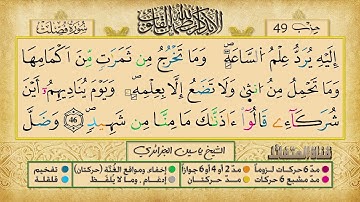 سورة فصلت
ألا بذكر الله تطمئن القلوب
حزب 49
إِلَيْهِ يُرَدُّ عِلْمُ السَّاعَةِ وَمَا تَخْرُجُ مِن ثَمَرَٰتٍ مِّنْ أَكْمَامِهَا
وَمَا تَحْمِلُ مِنْ أُنثَىٰ وَلَا تَضَعُ إِلَّا بِعِلْمِهِۦ وَيَوْمَ يُنَادِيهِمْ أَيْنَ
شُرَكَآءِے قَالُوٓا۟ ءَاذَنَّٰكَ مَا مِنَّا مِن شَهِيدٍ 46 وَضَلَّ
الشيخ ياسين الجزائري
مدّ 6 حركات لزوماً مدّ 2 أو 4 أو 6 جوازاً إخفاء ومواقع الغُنَّة (حركتان) تفخيم
مدّ مشبع 6 حركات مدّ حركتان إدغام، وما لا يُلفَظ قلقلة